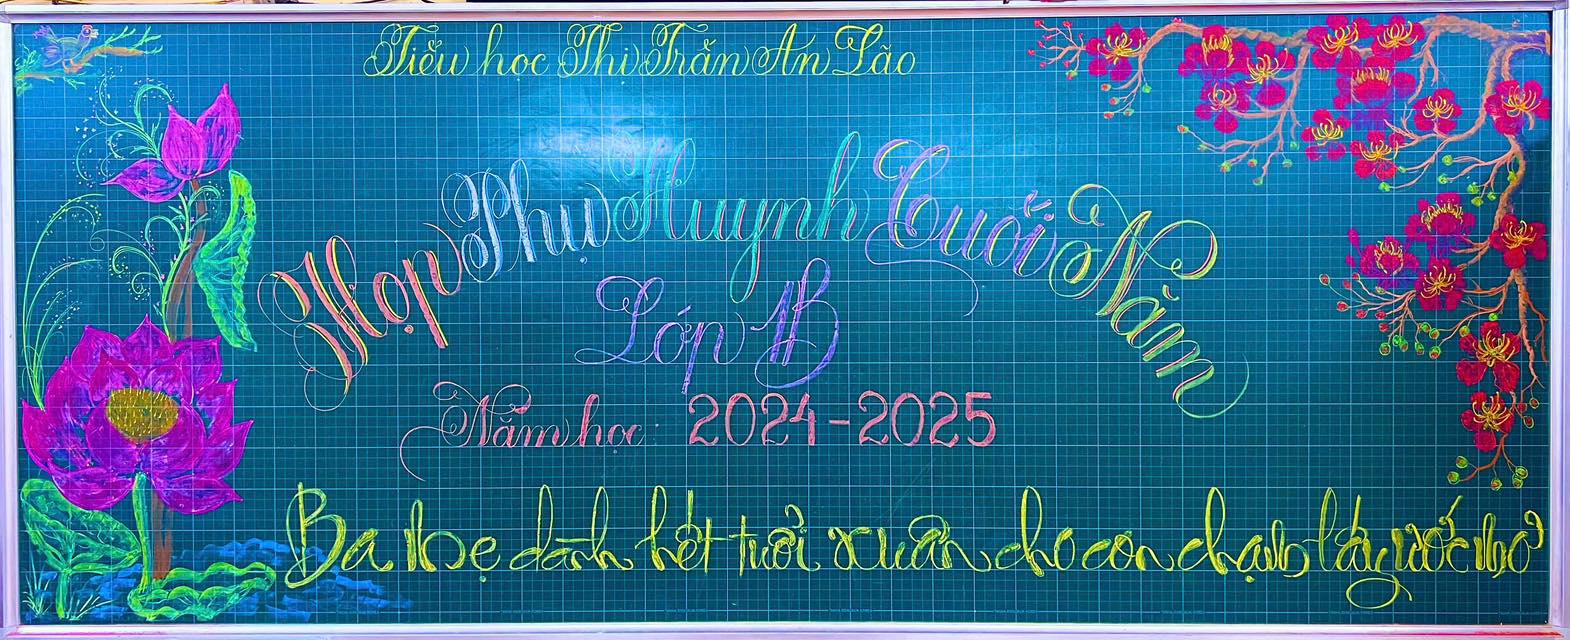 Tiểu học Thị Trấn An Lão
Họp Phụ Huynh Cuối Năm
Lớp 1B
Năm học: 2024-2025
Ba mẹ dành hết tuổi xuân cho con chạm lấy ước mơ